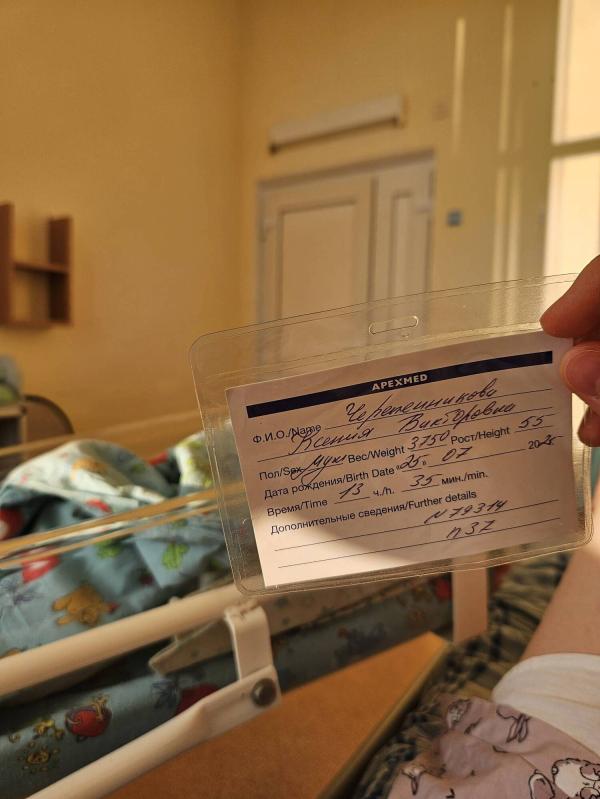 APEXMED
Ф.И.О./Name Черепенникова
Ксения Викторовна
Пол/Sex муж Вес/Weight 3750 Рост/Height 55
Дата рождения/Birth Date "25" 07 20
Время/Time 13 ч./h. 35 мин./min.
Дополнительные сведения/Further details
N 79314
п37